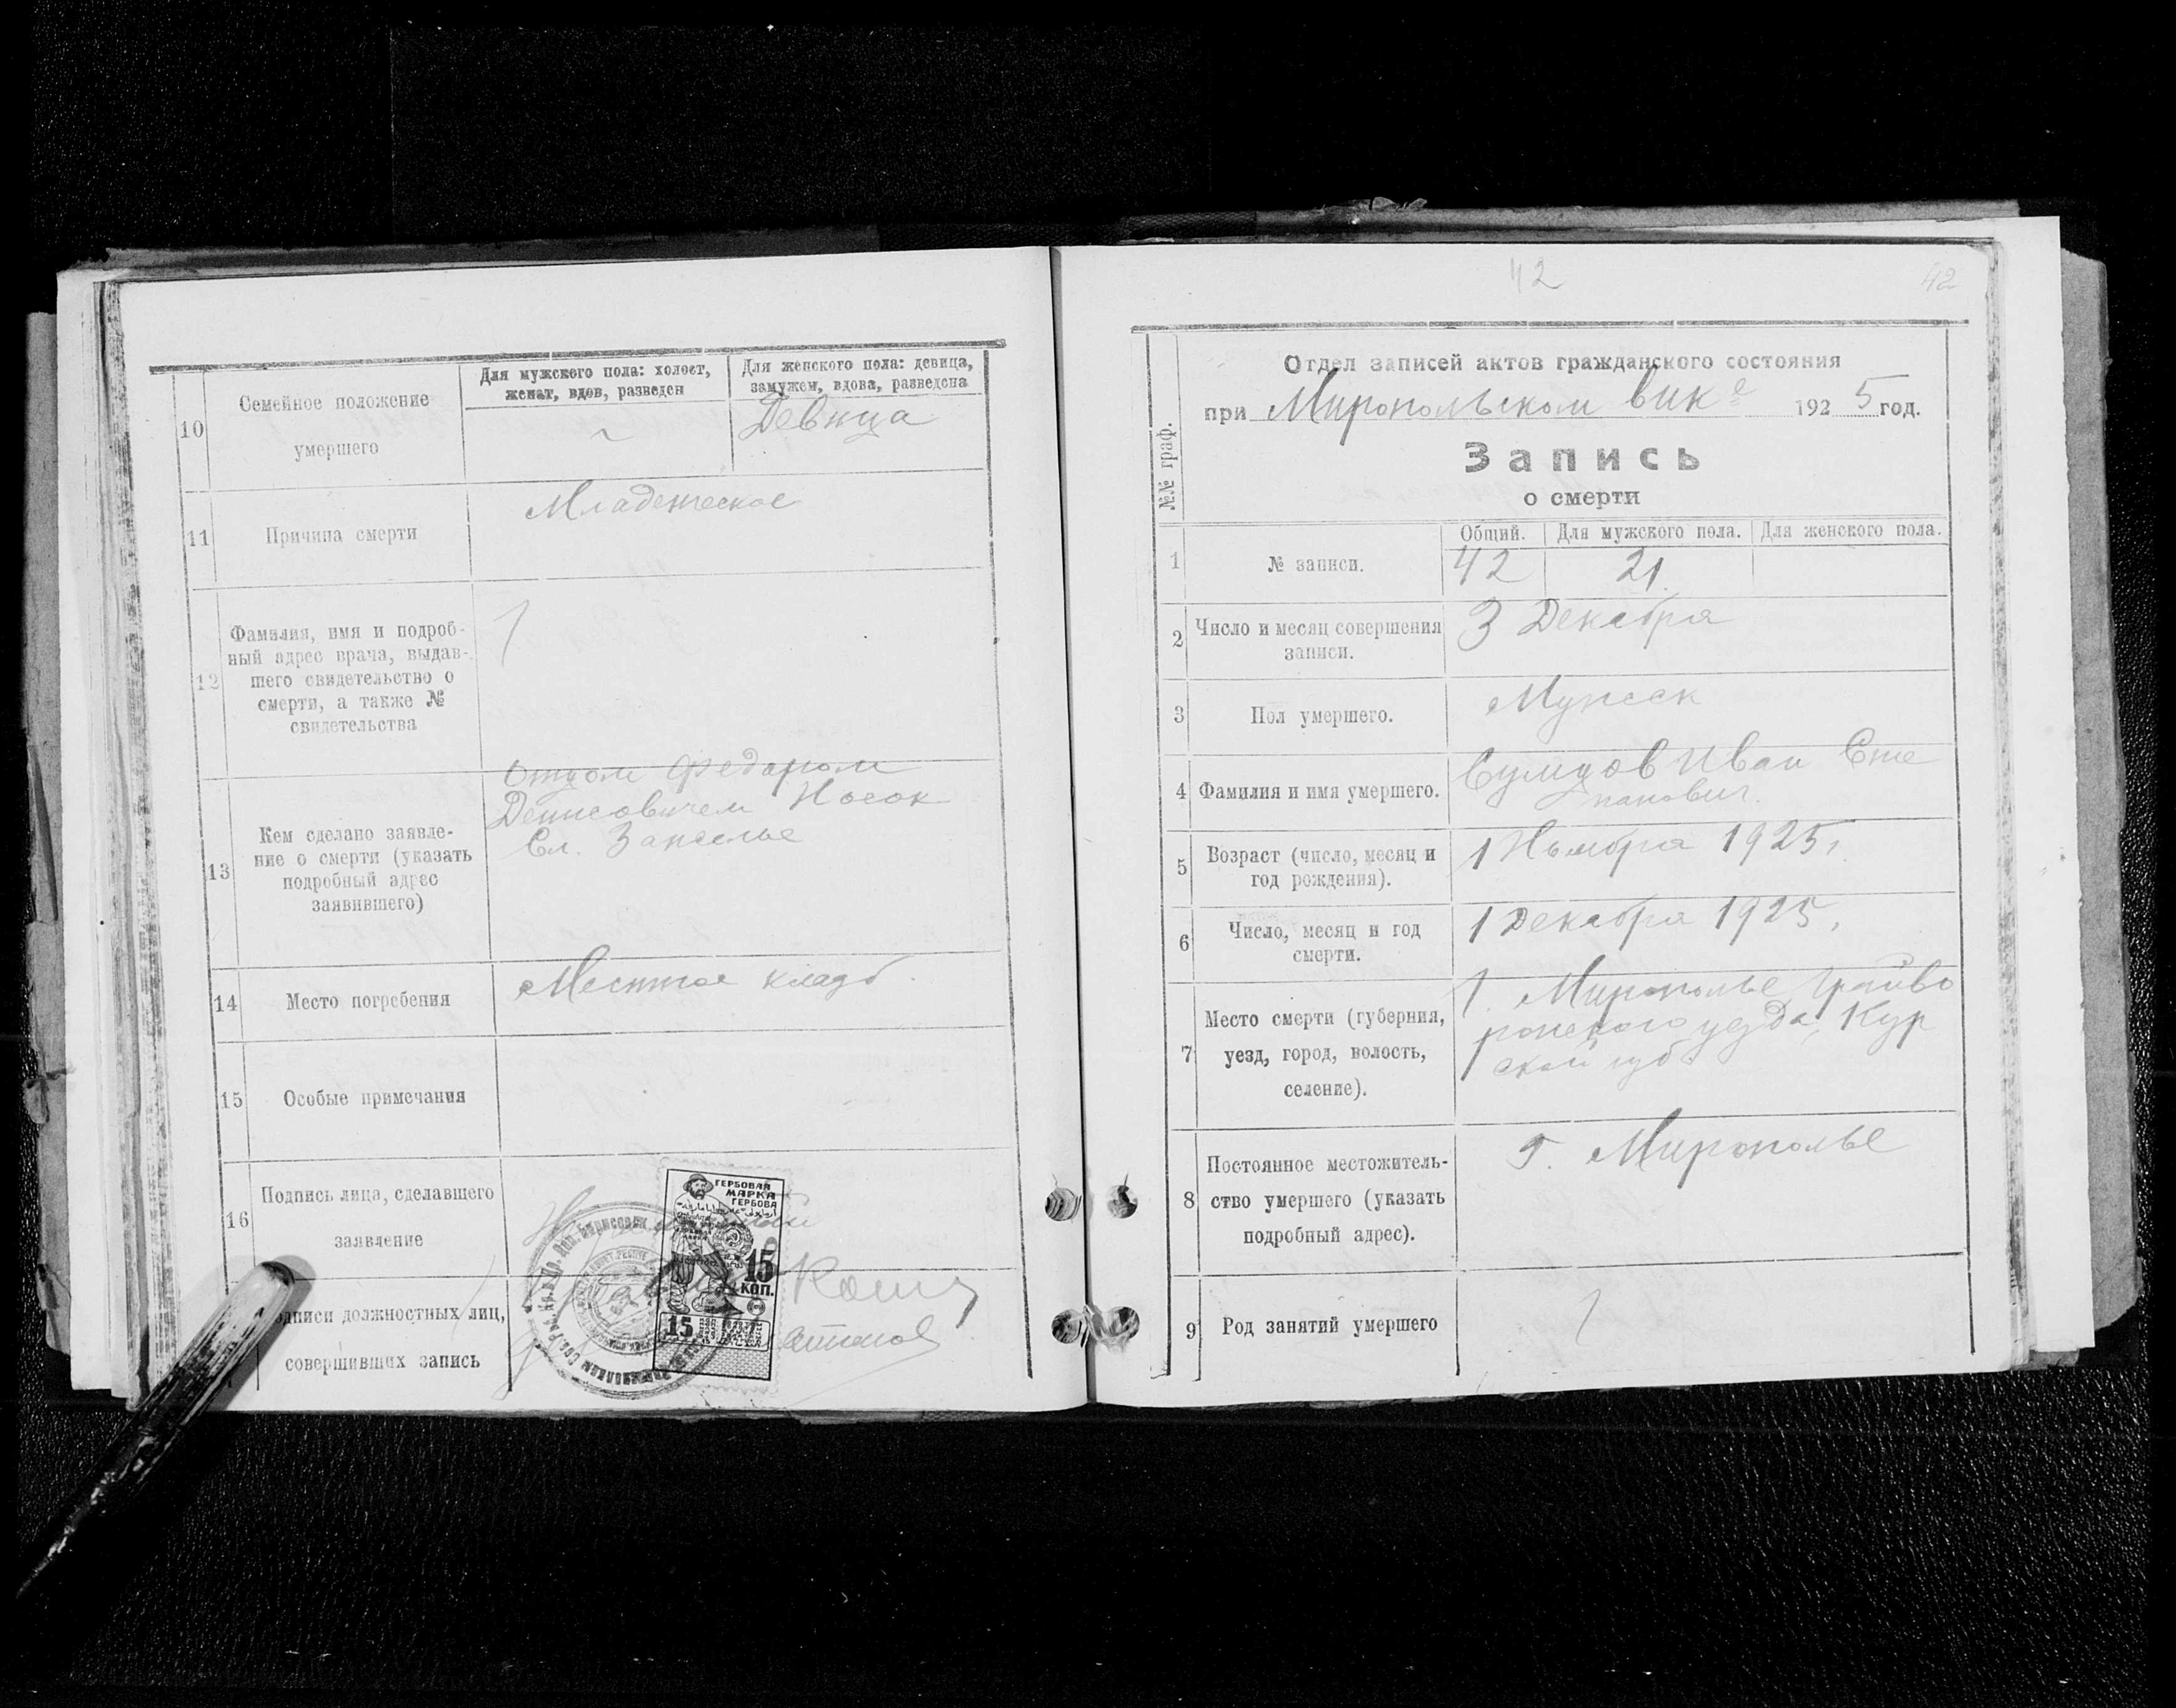 10
Семейное положение
умершего
Для мужского пола: холост,
женат, вдов, разведен
Для женского пола: девица,
замужем, вдова, разведена
~
Девица
11
Причина смерти
Младенческое
12
Фамилия, имя и подроб-
ный адрес врача, выдав-
шего свидетельство о
смерти, а также №
свидетельства
13
Кем сделано заявле-
ние о смерти (указать
подробный адрес
заявившего)
Отцом Федаром
Денисовичем Носок
Сл. Запселье
14
Место погребения
Местное кладб.
15
Особые примечания
16
Подпись лица, сделавшего
заявление
ГЕРБОВАЯ
МАРКА
ГЕРБОВА
15
КОП.
15
одписи должностных лиц,
совершивших запись
42
42
№№ граф.
Отдел записей актов гражданского состояния
при Миропольском вике 1925 год.
Запись
о смерти
1
№ записи.
Общий.
Для мужского пола.
Для женского пола.
42
21.
2
Число и месяц совершения
записи.
3 Декабря
3
Пол умершего.
Мужск
4
Фамилия и имя умершего.
Сумцов Иван Сте
панович.
5
Возраст (число, месяц и
год рождения).
1 Ноября 1925 г.
6
Число, месяц и год
смерти.
1 Декабря 1925,
7
Место смерти (губерния,
уезд, город, волость,
селение).
г. Мирополье Грайво
ронского уезда, Кур
ской губ
8
Постоянное местожитель-
ство умершего (указать
подробный адрес).
г. Мирополье
9
Род занятий умершего